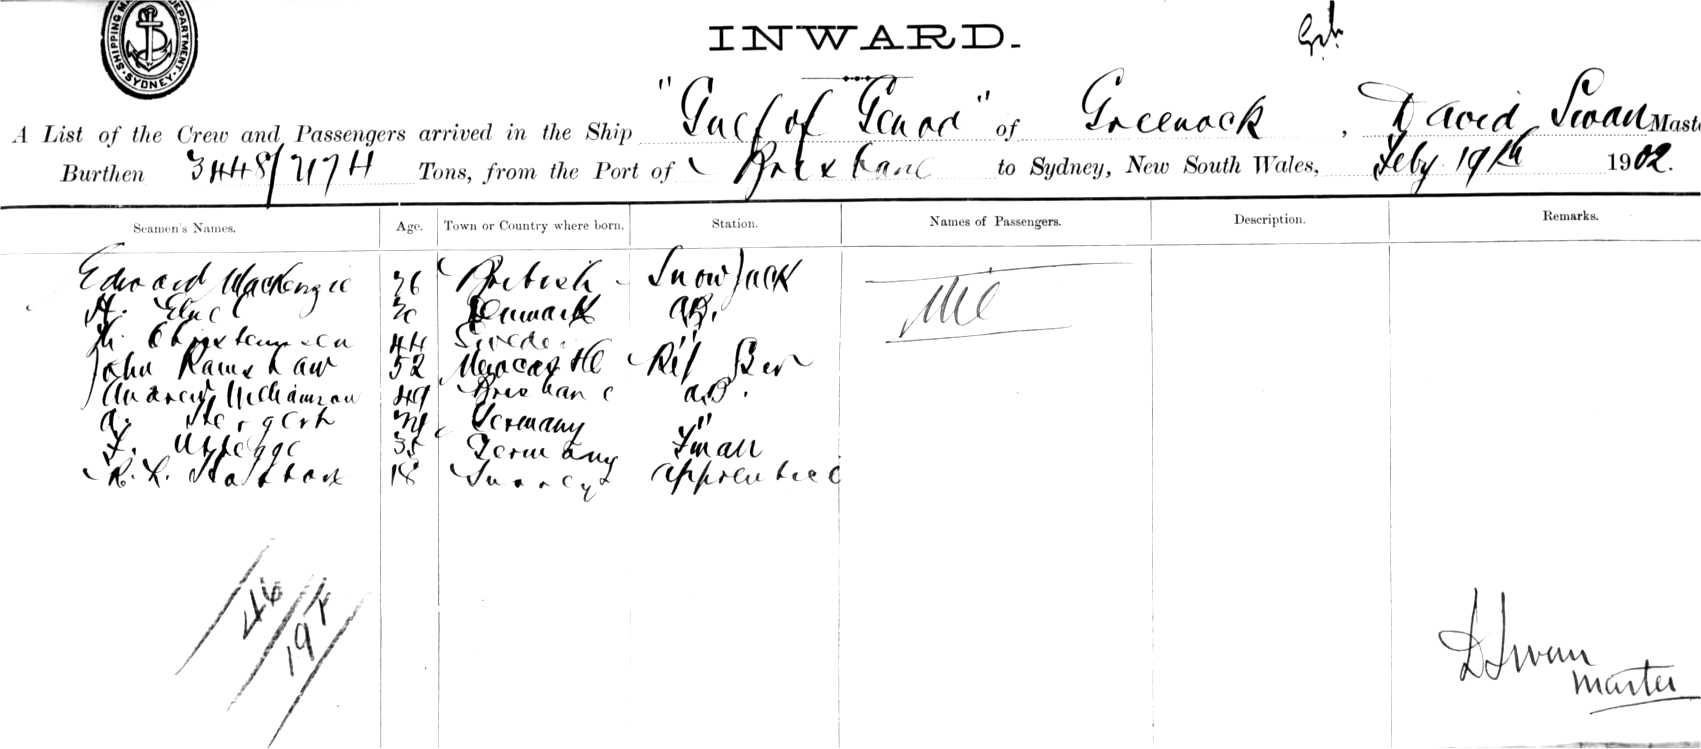 SHIPPING MA DEPARTMENT. SYDNEY.
INWARD.
A List of the Crew and Passengers arrived in the Ship "Gulf of Genoa" of Greenock, David Swan Maste
Burthen 3448/ Tons, from the Port of Brisbane to Sydney, New South Wales, Feby 19th 1902.
Seamen's Names. Age. Town or Country where born. Station. Names of Passengers. Description. Remarks.
Edward Mackenzie 36 British
H. Denmark AB.
Christensen 44 Swede "
John Ramshaw 52 Newcastle
Andrew Williamson 49 Brisbane A.B.
A. Germany "
F. 35 Germany
R. L. 18 Surrey apprentice
Nil
46
197
D Swan
master